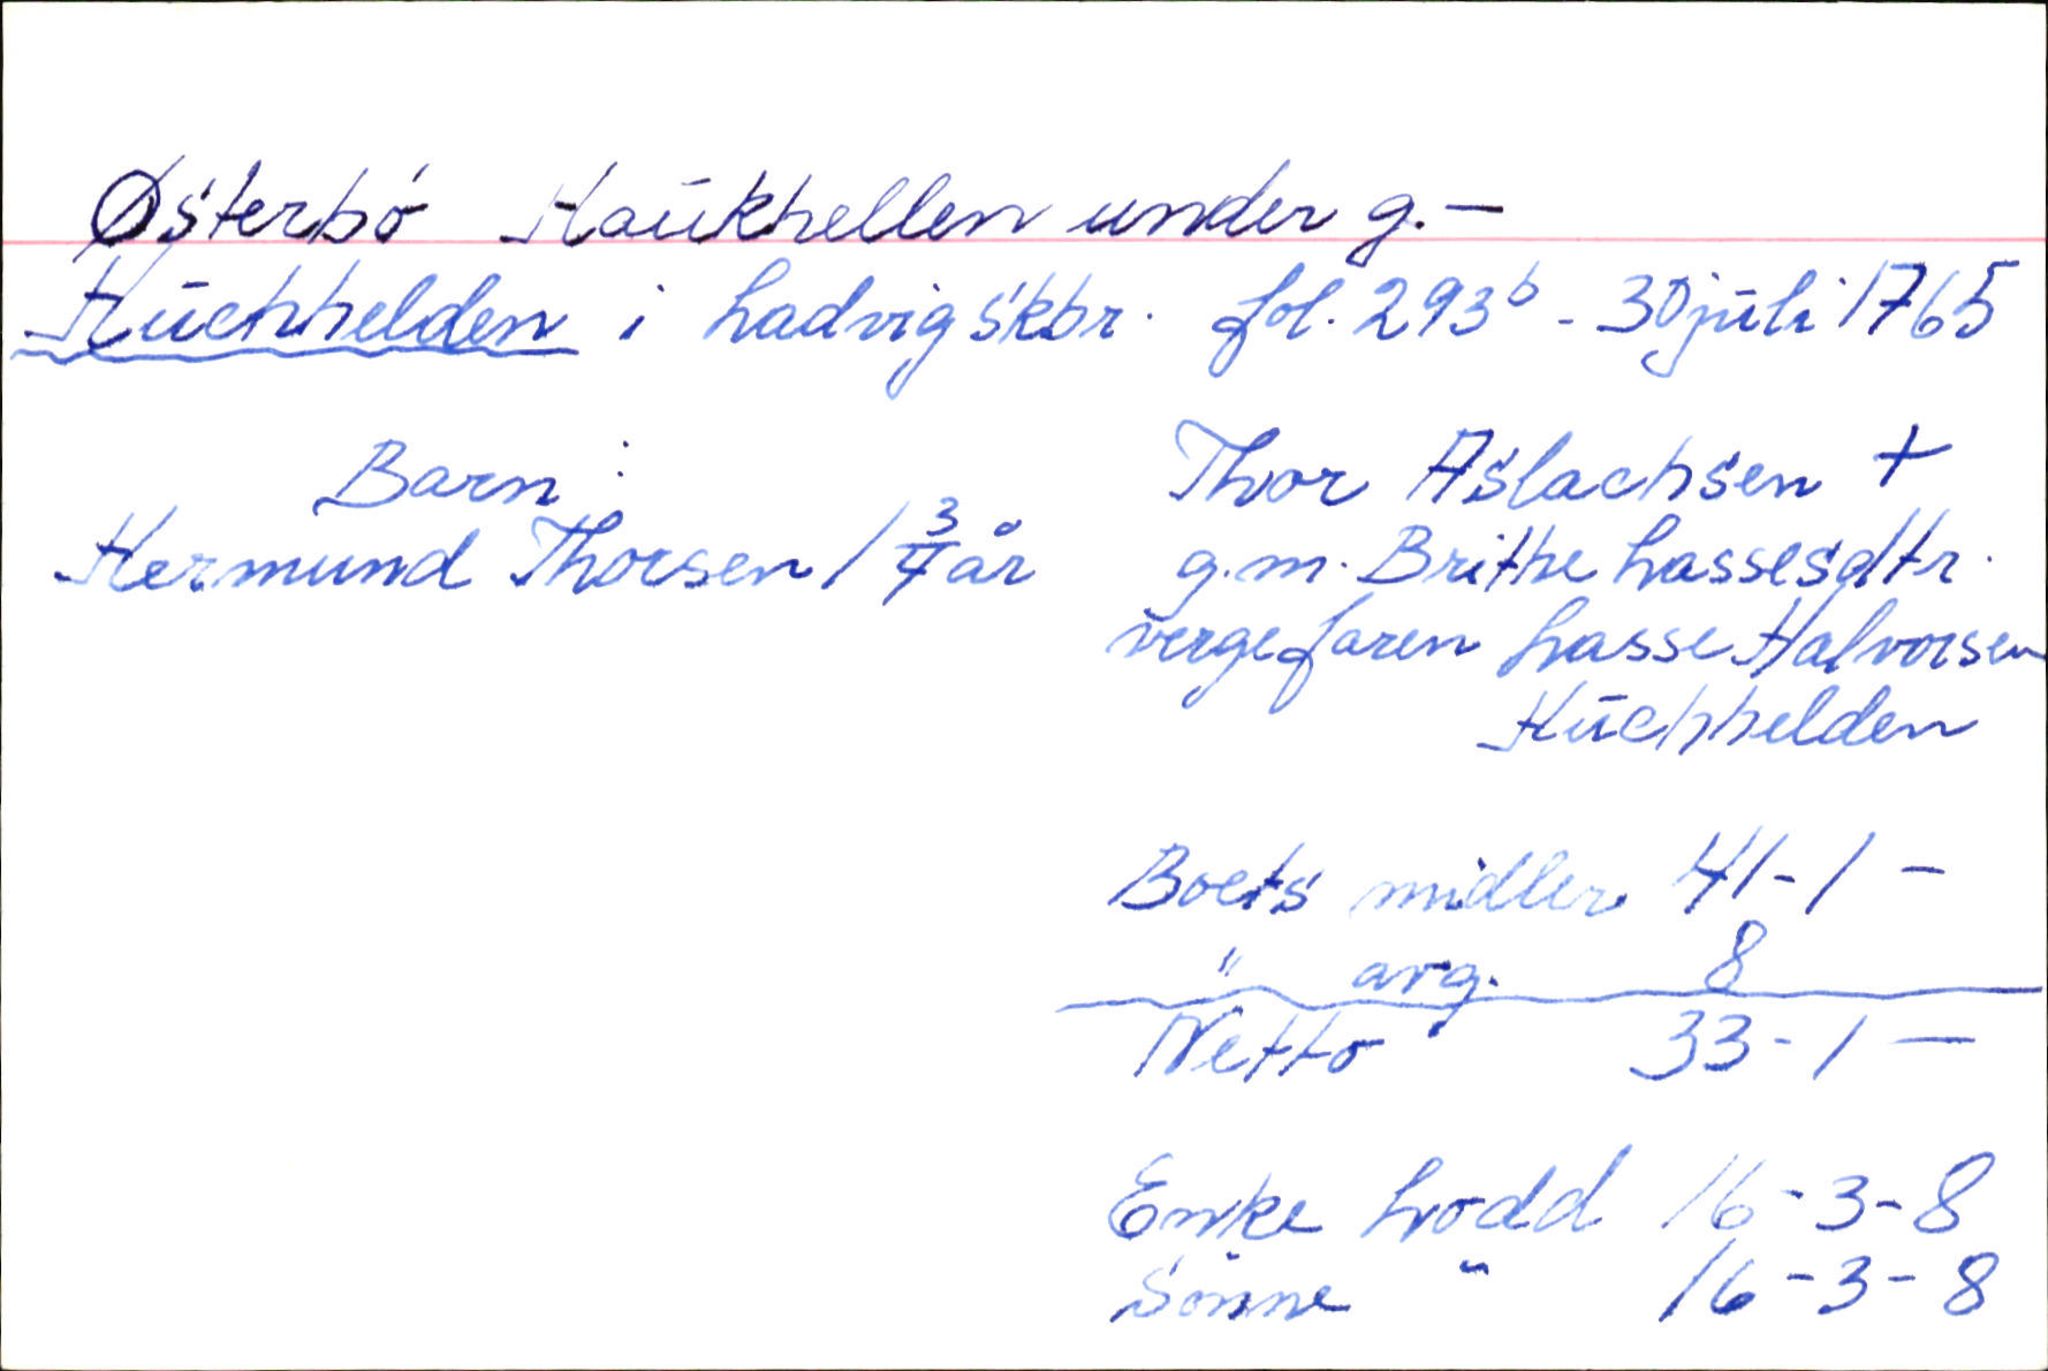 Østerbö Haukhellen under g. —
Huchhelden i Ladvig skbr. fol. 293b - 30 juli 1765
Barn:
Hermund Thorsen 1 3/4 år
Thor Aslachsen +
g.m. Brithe Lassesdtr.
verge faren Lasse Halvorsen
Huchhelden
Boets midler 41-1 —
" avg. 8
Netto 33-1 —
Enke Lodd 16-3-8
Sönne " 16-3-8